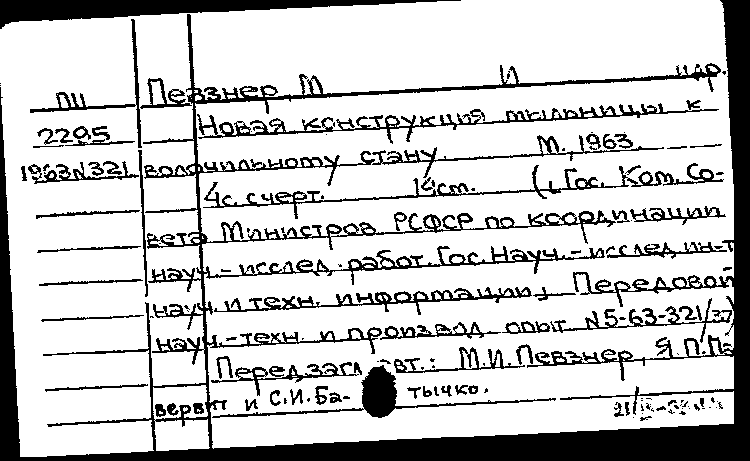 ПЦ Певзнер, М И и др.
2295 Новая конструкция мыльницы к
1963 N321 волочильному стану. М., 1963.
4с. с черт. 14 cm. (Гос. Ком. Со-
вета Министров РСФСР по координации
науч.-исслед. работ. Гос. Науч.-исслед. ин-т
науч. и техн. информации, Передовой
науч.-техн. и производ. опыт N5-63-321/37)
Перед загл. авт.: М.И. Певзнер, Я.П.
вервит и С.И. Ба- тычко.